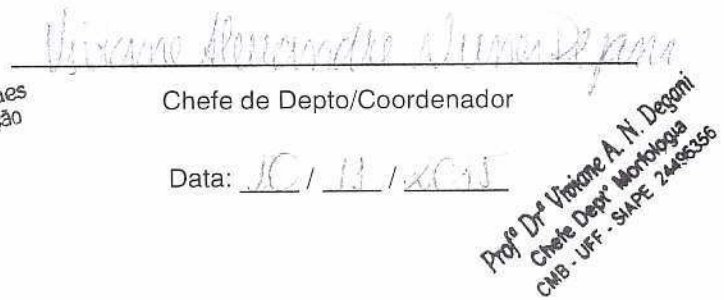 Viviane Alexandre Nunes Degani
Chefe de Depto/Coordenador
Data: 10 / 11 / 2015
Profª Drª Viviane A. N. Degani
Chefe Deptº Morfologia
CMB - UFF - SIAPE 24495356
ão